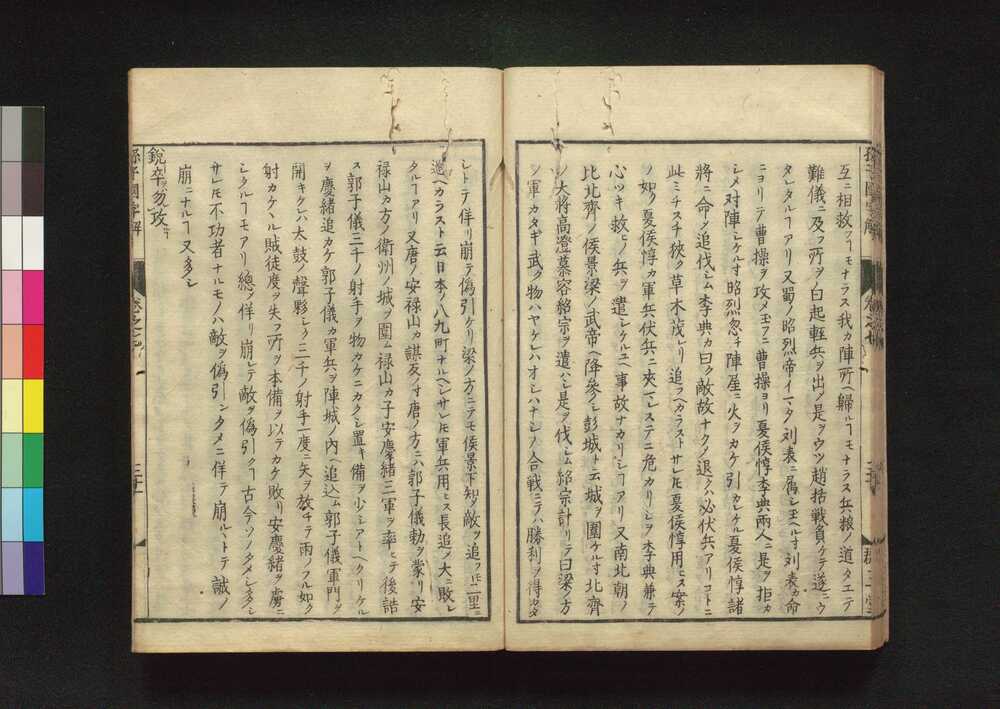 互ニ相救フヿモナラス我カ陣所ヘ歸ルヿモナラス兵粮ノ道タエテ
難儀ニ及フ所ヲ白起軽兵ヲ出メ是ヲウツ趙括戦負ケテ遂ニウ
タレタルヿアリ又蜀ノ昭烈帝イマタ刘表ニ属シ玉ヘル寸刘表カ命
ニヨリテ曹操ヲ攻メ玉フニ曹操ヨリ夏侯惇李典兩人ニ是ヲ拒カ
シメ対陣シケル寸昭烈忽チ陣屋ニ火ヲカケ引カレケル夏侯惇諸
將ニ命メ追伐ム李典カ曰ク敵故ナクメ退クハ必伏兵アリコトニ
此ミチスチ狹ク草木茂レリ追フヘカラスト サレ𪜈夏侯惇用ヒス案ノ
ノ如ク夏侯惇カ軍兵伏兵ニ夾マレステニ危カリシヲ李典兼テ
心ツキ救ヒノ兵ヲ遣シケルユヘ事故ナカリシヿアリ又南北朝ノ
比北齊ノ侯景梁ノ武帝ヘ降參シ彭城ト云城ヲ圍ケル寸北齊
ノ大将高澄慕容紹宗ヲ遣ハシ是ヲ伐シム紹宗計リテ曰梁ノ方
ノ軍カタギ武ク物ハヤケレハオシハナシノ合戦ニテハ勝利ヲ得カタ
シトテ佯リ崩テ偽引ケリ梁ノ方ニテモ侯景下知メ敵ヲ追フ𪜈二里ニ
過ヘカラスト云日本ノ八九町ナルヘシサレ𪜈軍兵用ヒス長追メ大ニ敗レ
タルヿアリ又唐ノ安禄山カ謀反ノ寸唐ノ方ニハ郭子儀勅ヲ蒙リ安
禄山カ方ノ衛州ノ城ヲ圍ム禄山カ子安慶緒三軍ヲ率ヒテ後詰
ス郭子儀三千ノ射手ヲ物カケニカクシ置キ備ヲ少シアトヘクリケル
ヲ慶緒追カケ郭子儀カ軍兵ヲ陣城ノ内ヘ追込ム郭子儀軍門ヲ
開キケレハ太鼓ノ聲夥シク三千ノ射手一度ニ矢ヲ放チテ雨ノフル如ク
射カケヽル賊徒度ヲ失フ所ヲ本備ヲ以テカケ敗リ安慶緒ヲ虜ニ
シタルヿモアリ總メ佯リ崩レテ敵ヲ偽引クヿ古今ソノタメシ多シ
サレ𪜈不功者ナルモノハ敵ヲ偽引ンタメニ佯テ崩ルヽトテ誠ノ
崩ニナルヿ又多シ
銳卒勿攻
孫子國字解